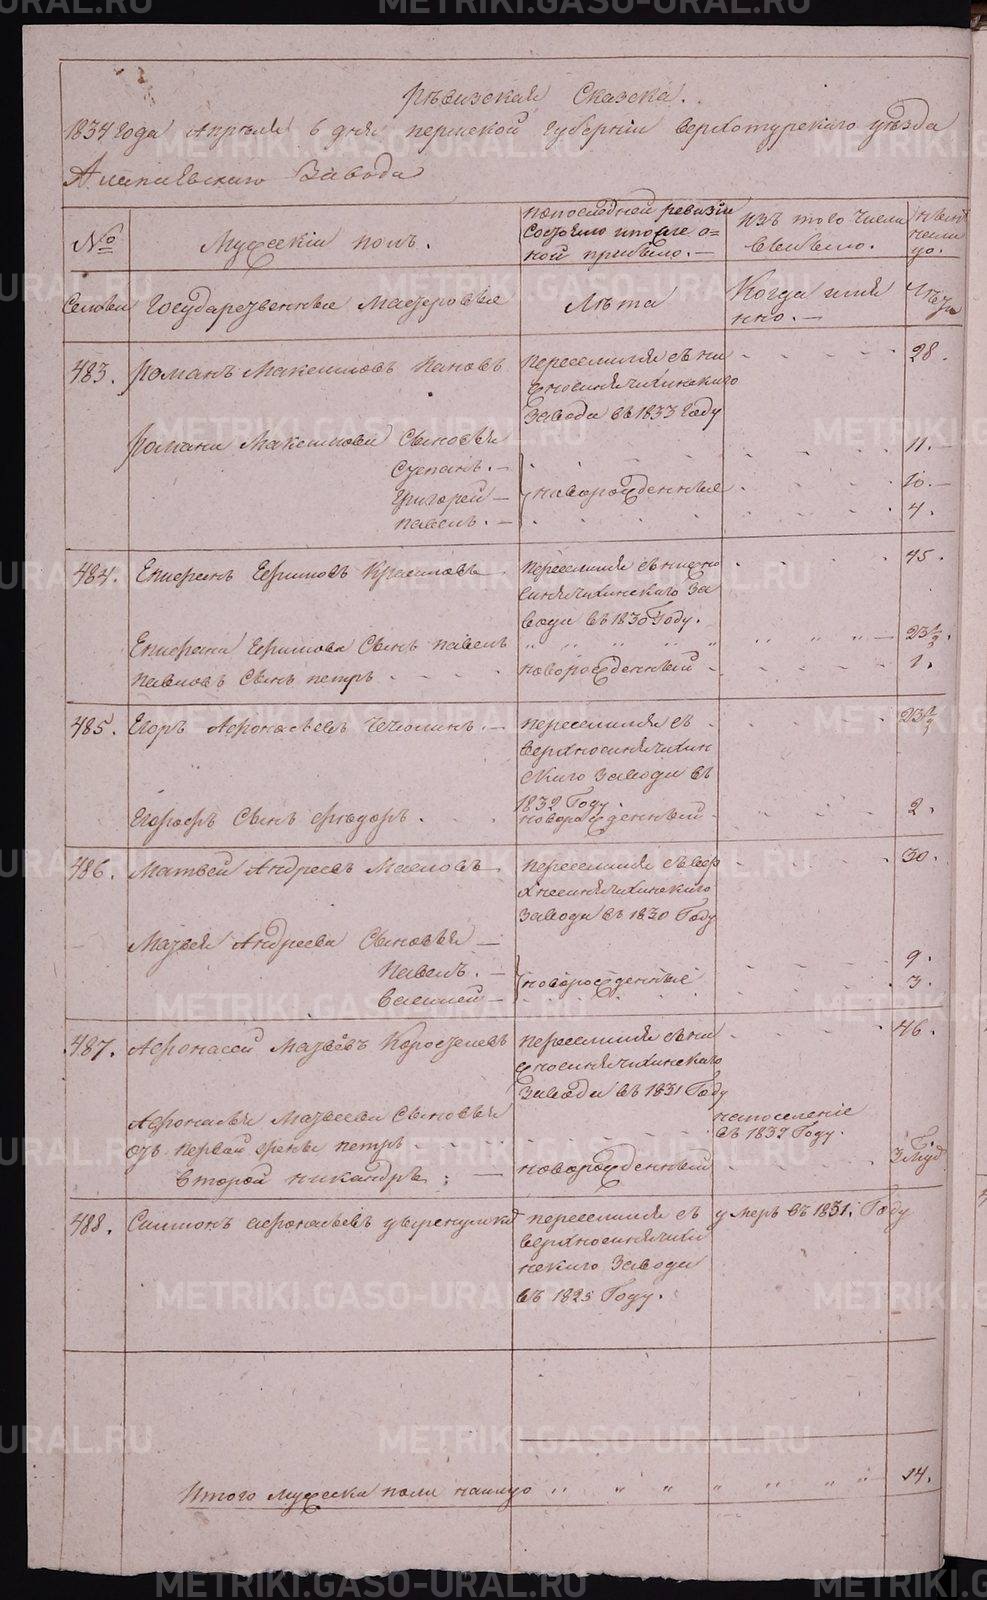 Ревизская Сказка.
1834 года Апреля 6 дня пермской Губернiи Верхотурского уезда
Алапаевского Завода
№
Мужескiй полъ.
попоследней ревизiи
состояло ипосле о=
ной прибыло. —
изъ того числа
выбыло.
ныне
налицо.
Семьи
Государственные Мастеровые
Лѣта
Когда имян
нно. —
Лѣта
483. Романъ Максимовъ Пановъ
Переселился съ ни
жнесинячихинского
Завода въ 1833 году
28.
Романа Максимова Сыновья
Степанъ. —
11. —
Григорей —
новорожденные
10. —
павелъ. —
4.
484. Епифанъ Ефимовъ
переселился съ нижне
синячихинского За
вода въ 1830 Году.
45.
Епифана Ефимова Сынъ павелъ
23½.
павловъ Сынъ петръ
новорожденный
1.
485. Егоръ Афонасьевъ Чечюлинъ. —
переселился съ
верхносинячихин
ского Завода въ
1832 Году.
23½
Сынъ Фёдоръ
новорожденный
2.
486. Матвей Андреевъ Масловъ —
переселился съ вер
хнесинячихинского
Завода въ 1830 Году
30.
Матвея Андреева Сыновья —
Павелъ. —
9.
василей —
новорожденные
3.
487. Афонасей Матвѣевъ Коростелевъ
переселился съ ни
жнесинячихинского
Завода въ 1831 Году
46.
Афонасья Матвеева Сыновья
отъ первой жены петръ
напоселенiе
въ 1832 Году.
второй никандръ;
новорожденный
488. Симионъ афонасьевъ
переселился съ
верхносинячихи
нского Завода
въ 1825 Году.
умеръ въ 1831. Году
Итого мужеска пола налицо
14.
METRIKI.GASO-URAL.RU